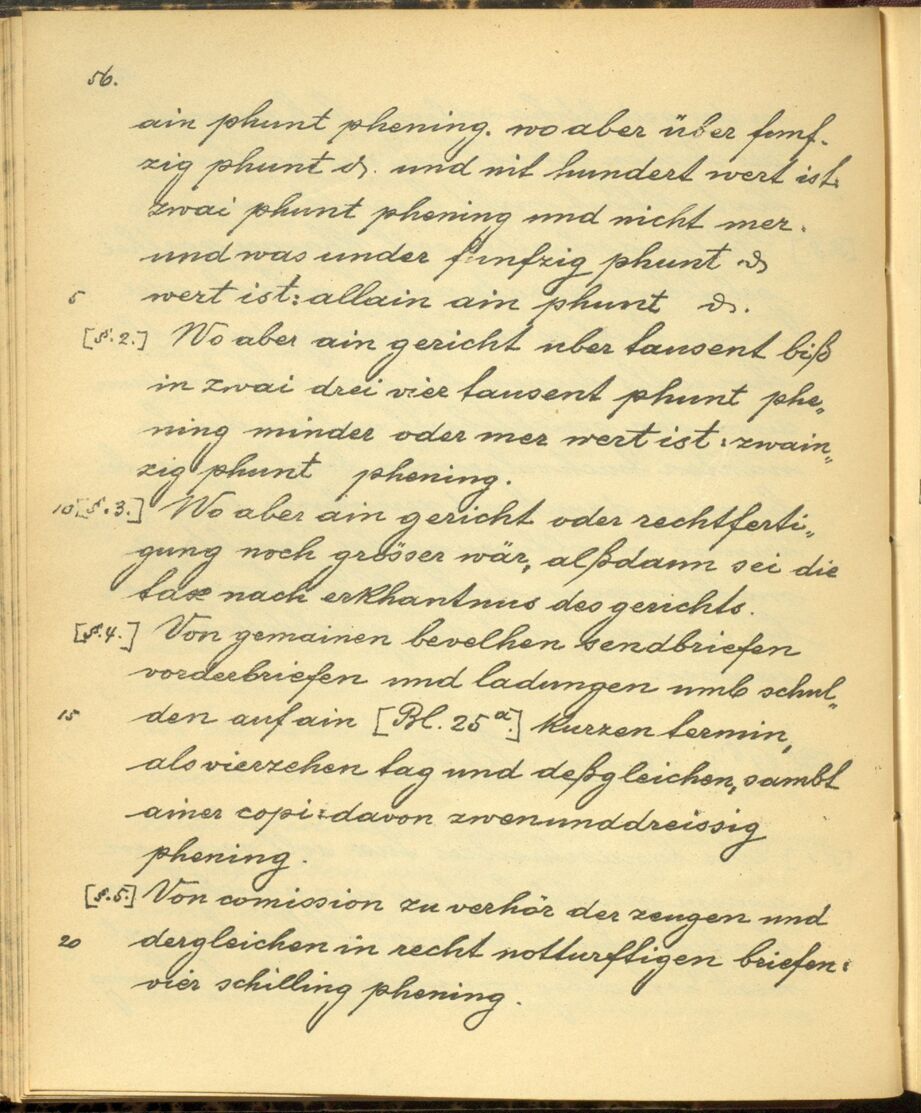 56.
ain phunt phening. wo aber über funf-
zig phunt ₰. und nit hundert wert ist:
zwai phunt phening und nicht mer.
und was under funfzig phunt ₰
5 wert ist: allain ain phunt ₰.
[§.2.] Wo aber ain gericht uber tausent biß
in zwai drei vier tausent phunt phe„
ning minder oder mer wert ist: zwain„
zig phunt phening.
10 [§.3.] Wo aber ain gericht oder rechtferti„
gung noch grösser wär, alßdann sei die
tax nach erkhantnus des gerichts.
[§.4.] Von gemainen bevelhen sendbriefen
vorderbriefen und ladungen umb schul„
15 den auf ain [Bl. 25a.] kurzen termin,
als vierzehen tag und deßgleichen, sambt
ainer copi: davon zwenunddreissig
phening.
[§.5.] Von comission zu verhör der zeugen und
20 dergleichen in recht notturftigen briefen:
vier schilling phening.